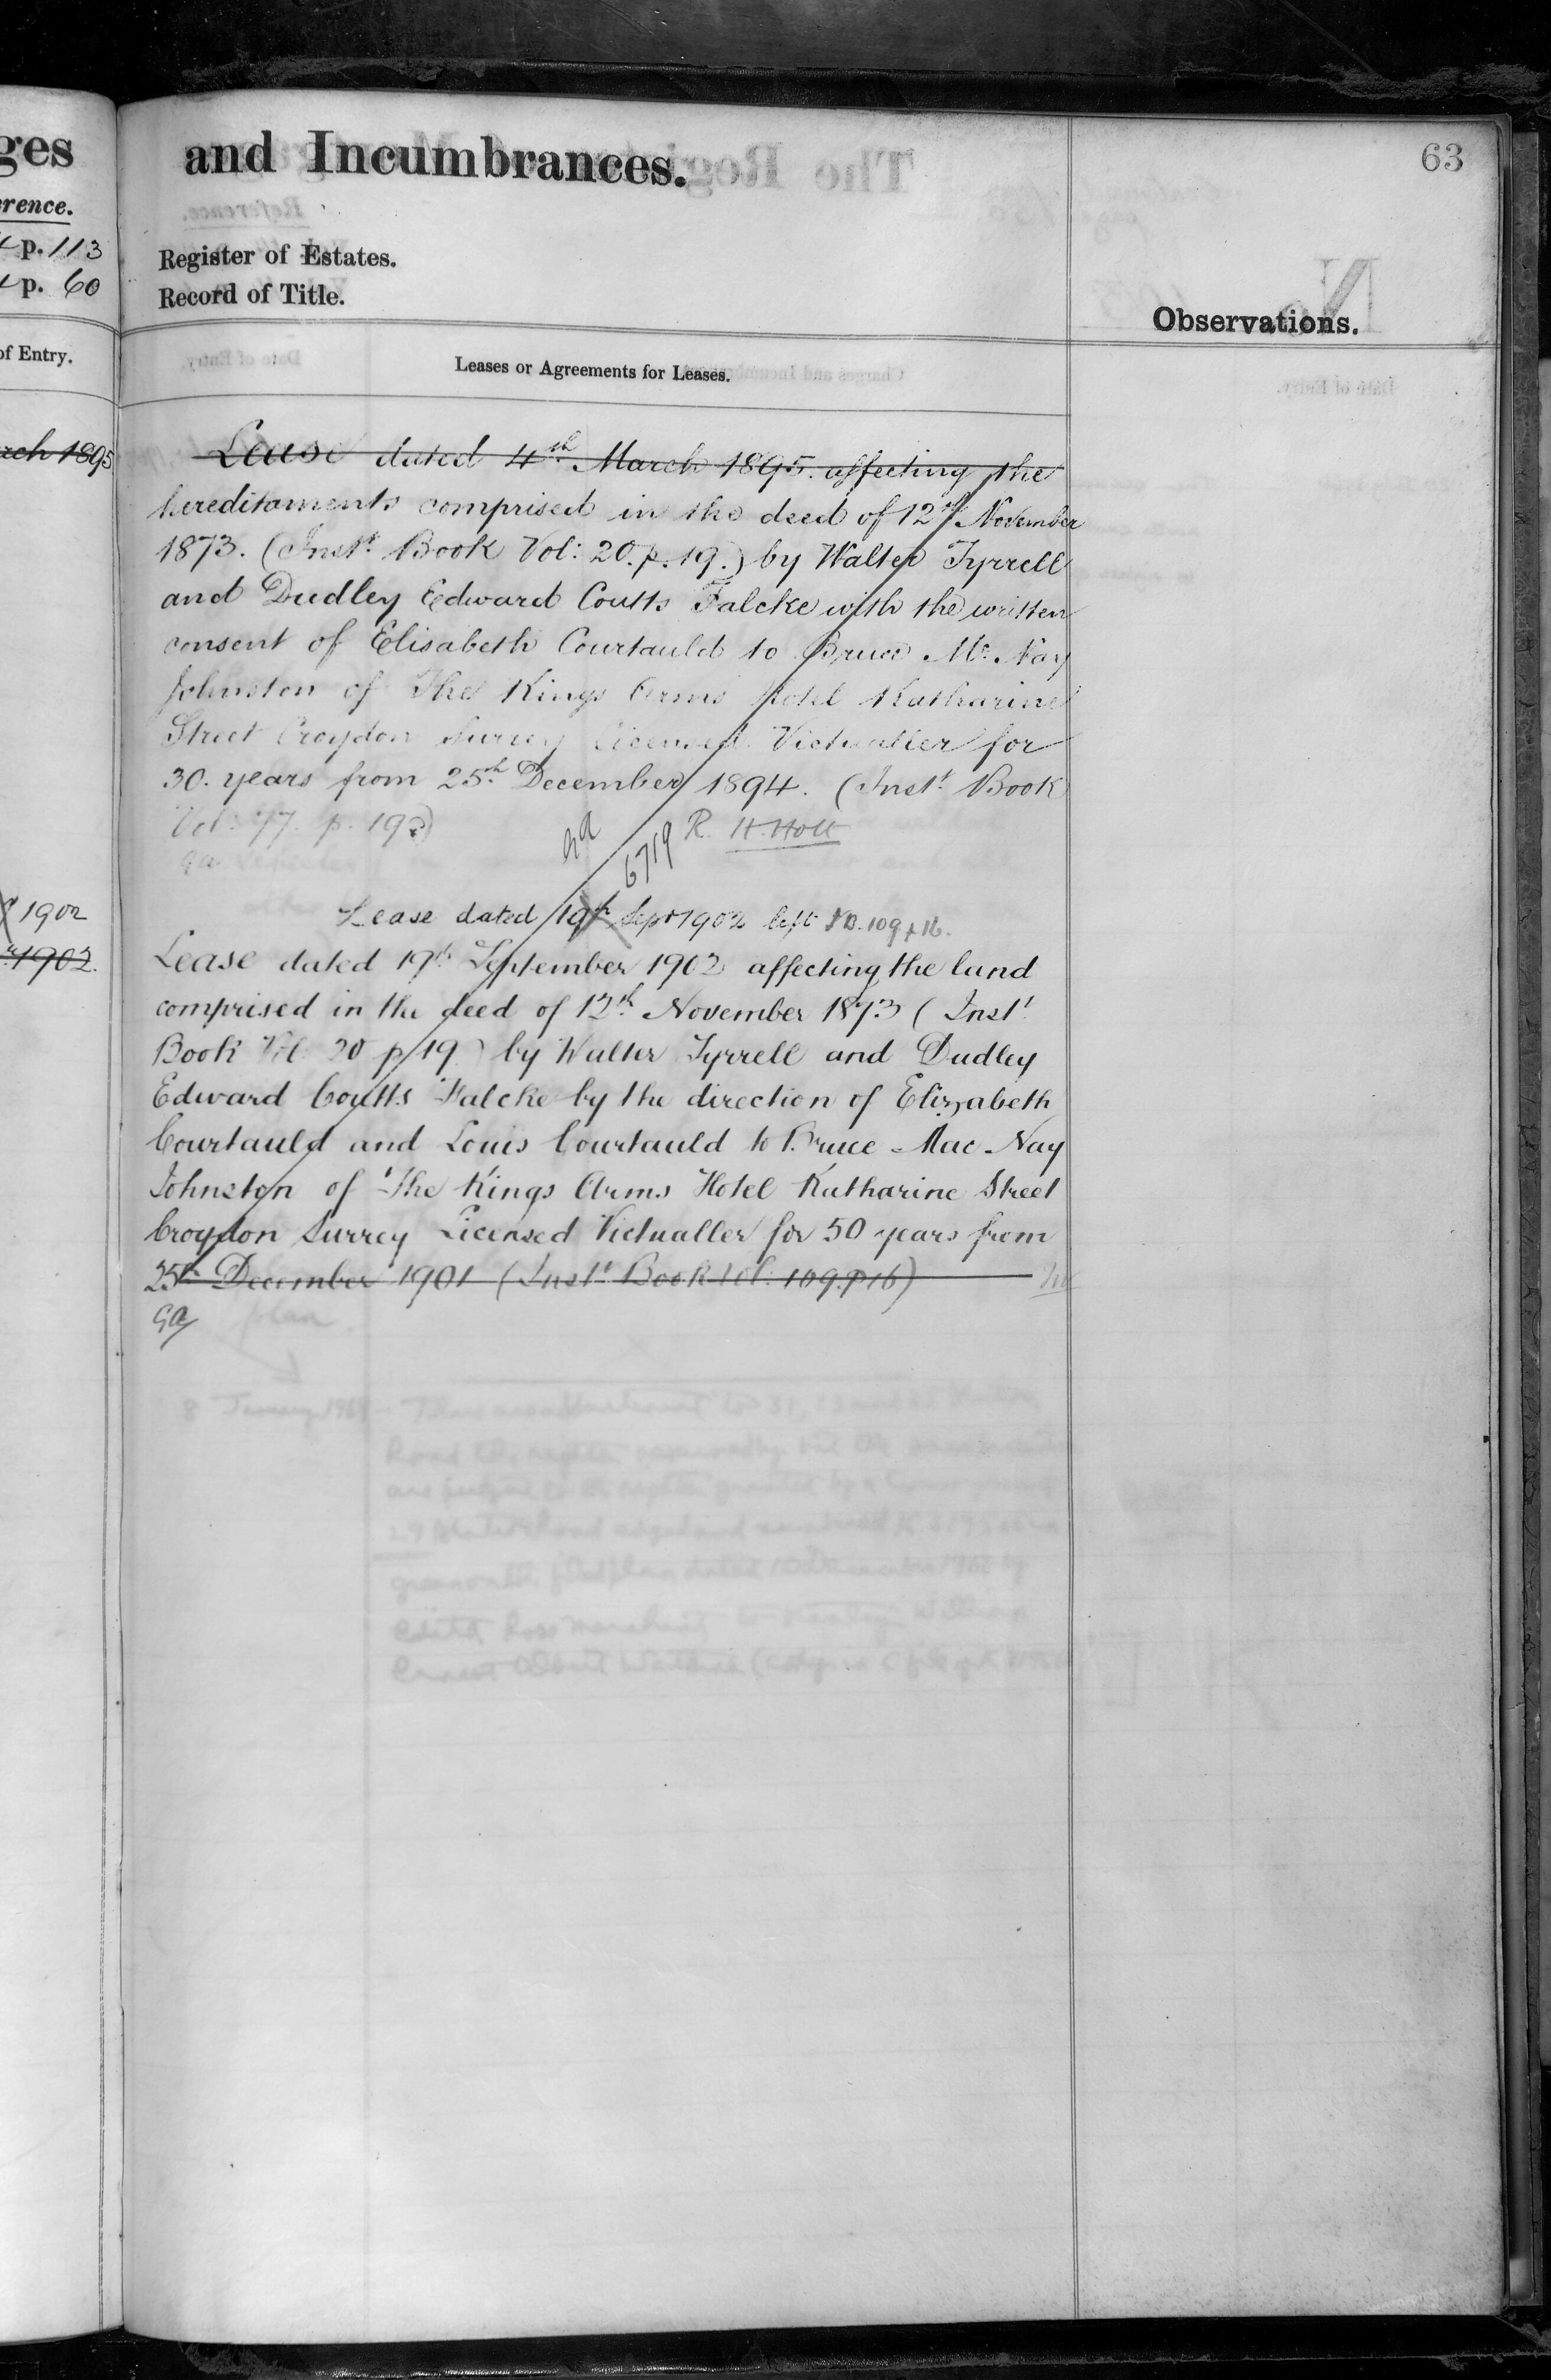 ges
rence.
p. 113
p. 60
of Entry.
rch 1895
1902
1902.
and Incumbrances.
63
Register of Estates.
Record of Title.
Observations.
Leases or Agreements for Leases.
Lease dated 4th March 1895. affecting the
hereditaments comprised in the deed of 12th November
1873. (Instt. Book Vol: 20. p. 19.) by Walter Tyrrell
and Dudley Edward Coutts Falcke with the written
consent of Elisabeth Courtauld to Bruce Mc. Nay
Johnston of The Kings Arms Hotel Katharine
Street Croydon Surrey Licensed Victualler for
30. years from 25th December 1894. (Instt. Book
Vol: 77. p. 192)
ga 6719 R. H. Holt
Lease dated 19th Sept 1902 left 109 p 16.
Lease dated 19th September 1902 affecting the land
comprised in the deed of 12th November 1873 (Instt.
Book Vol. 20 p 19) by Walter Tyrrell and Dudley
Edward Coutts Falcke by the direction of Elizabeth
Courtauld and Louis Courtauld to Bruce Mac Nay
Johnston of The Kings Arms Hotel Katharine Street
Croydon Surrey Licensed Victualler for 50 years from
25th December 1901 (Instt. Book Vol. 109. p 16)
ga